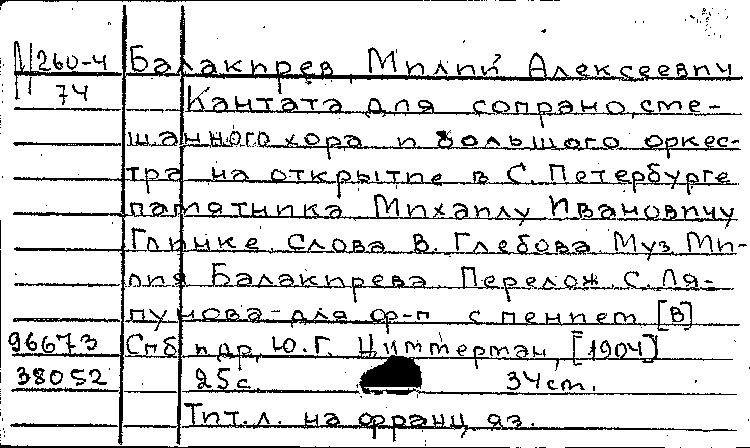 П 260-4 Балакирев, Милий Алексеевич
74 Кантата для сопрано, сме-
шанного хора и большого оркес-
тра на открытие в С. Петербурге
памятника Михаилу Ивановичу
Глинке. Слова В. Глебова Муз Ми-
лия Балакирева. Перелож. С. Ля-
пунова для ф-п с пением [В]
96673 Спб и др, Ю.Г. Циммерман, [1904]
38052 25с. 34cm.
Тит.л. на франц яз.